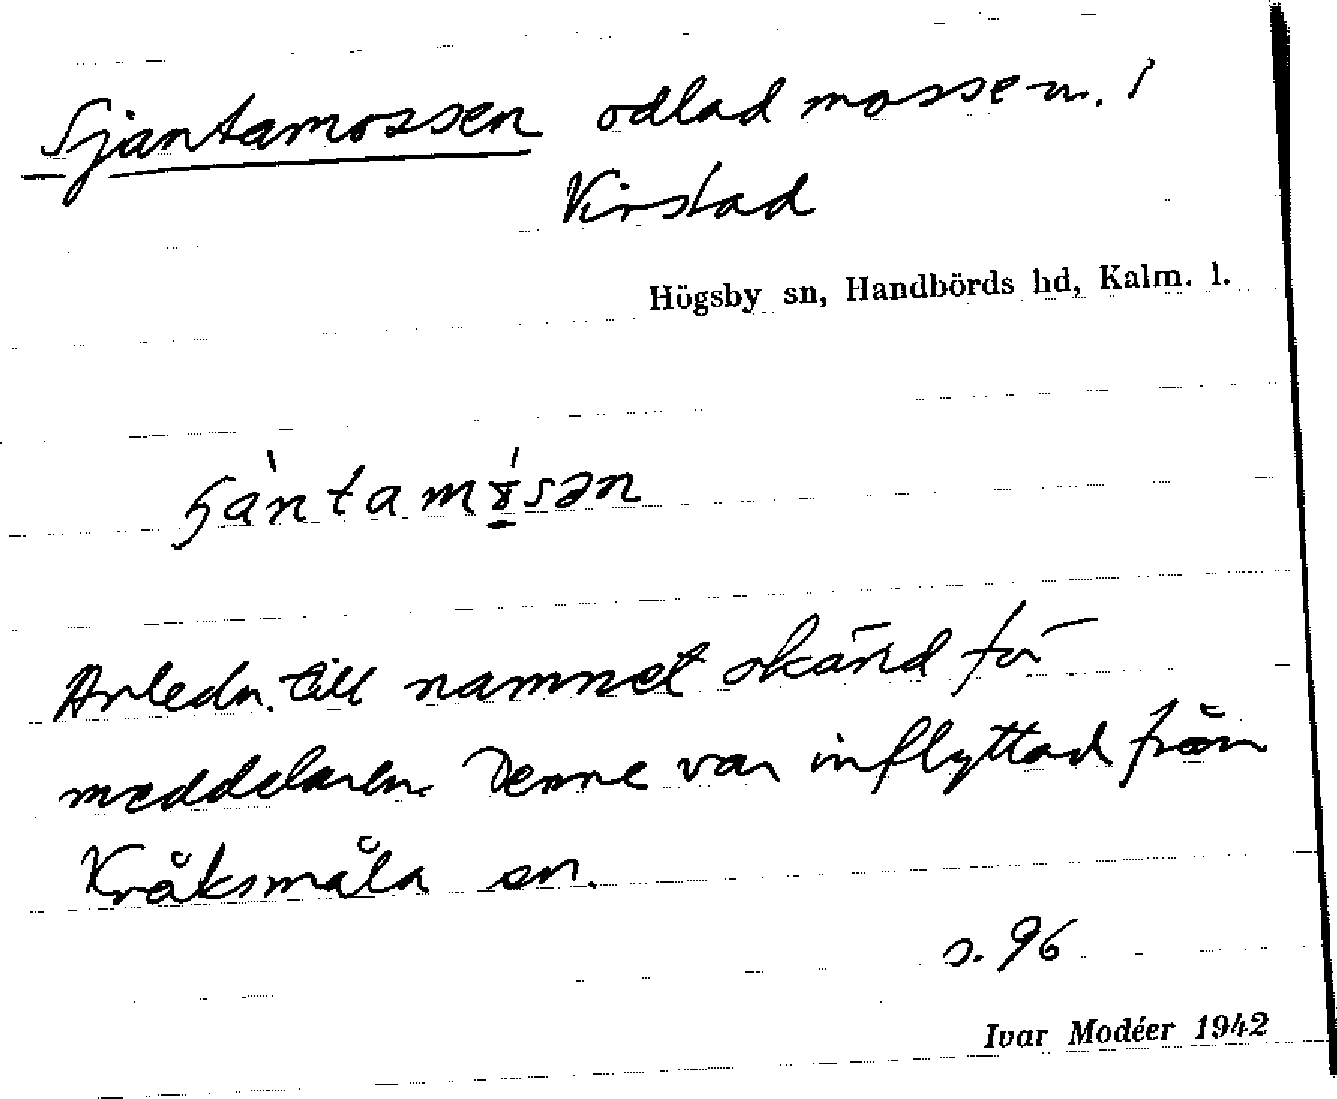 Sjantamossen odlad mosse m. I
Virstad
Högsby sn, Handbörds hd, Kalm. l.
Anledn. till namnet okänd för
meddelaren. Denne var inflyttad från
Kråksmåla sn.
s. 96
Ivar Modéer 1942